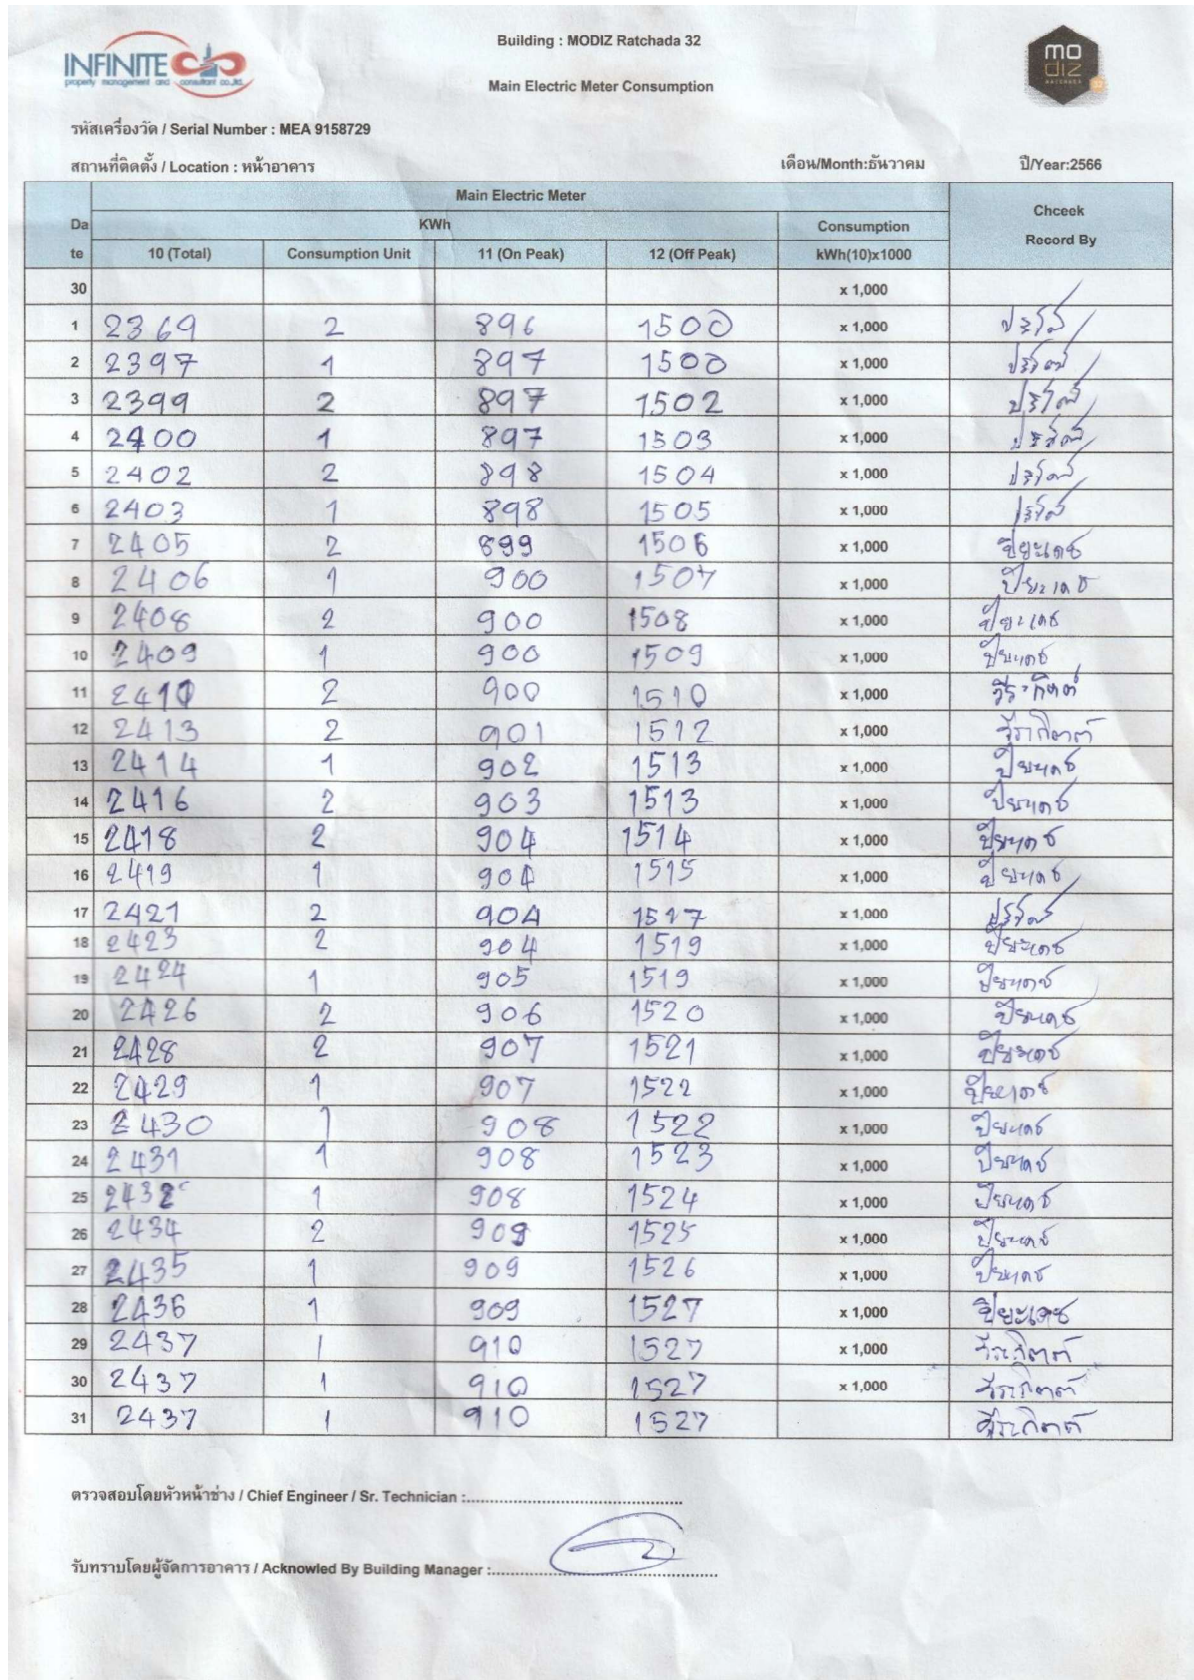 INFINITE
property management and consultant co.,ltd.
Building : MODIZ Ratchada 32
Main Electric Meter Consumption
mo
diz
RATCHADA
32
รหัสเครื่องวัด / Serial Number : MEA 9158729
สถานที่ติดตั้ง / Location : หน้าอาคาร เดือน/Month:ธันวาคม ปี/Year:2566
Main Electric Meter
Da te KWh Consumption Chceek Record By
10 (Total) Consumption Unit 11 (On Peak) 12 (Off Peak) kWh(10)x1000
30 x 1,000
1 2369 2 896 1500 x 1,000
2 2397 1 897 1500 x 1,000
3 2399 2 897 1502 x 1,000
4 2400 1 897 1503 x 1,000
5 2402 2 898 1504 x 1,000
6 2403 1 898 1505 x 1,000
7 2405 2 899 1506 x 1,000 ปิยะเดช
8 2406 1 900 1507 x 1,000 ปิยะเดช
9 2408 2 900 1508 x 1,000 ปิยะเดช
10 2409 1 900 1509 x 1,000 ปิยะเดช
11 2411 2 900 1510 x 1,000 วีระกิตต์
12 2413 2 901 1512 x 1,000 วีระกิตต์
13 2414 1 902 1513 x 1,000 ปิยะเดช
14 2416 2 903 1513 x 1,000 ปิยะเดช
15 2418 2 904 1514 x 1,000 ปิยะเดช
16 2419 1 904 1515 x 1,000 ปิยะเดช
17 2421 2 904 1517 x 1,000
18 2423 2 904 1519 x 1,000 ปิยะเดช
19 2424 1 905 1519 x 1,000 ปิยะเดช
20 2426 2 906 1520 x 1,000 ปิยะเดช
21 2428 2 907 1521 x 1,000 ปิยะเดช
22 2429 1 907 1522 x 1,000 ปิยะเดช
23 2430 1 908 1522 x 1,000 ปิยะเดช
24 2431 1 908 1523 x 1,000 ปิยะเดช
25 2432 1 908 1524 x 1,000 ปิยะเดช
26 2434 2 909 1525 x 1,000 ปิยะเดช
27 2435 1 909 1526 x 1,000 ปิยะเดช
28 2436 1 909 1527 x 1,000 ปิยะเดช
29 2437 1 910 1527 x 1,000 วีระกิตต์
30 2437 1 910 1527 x 1,000 วีระกิตต์
31 2437 1 910 1527 วีระกิตต์
ตรวจสอบโดยหัวหน้าช่าง / Chief Engineer / Sr. Technician :
รับทราบโดยผู้จัดการอาคาร / Acknowled By Building Manager :